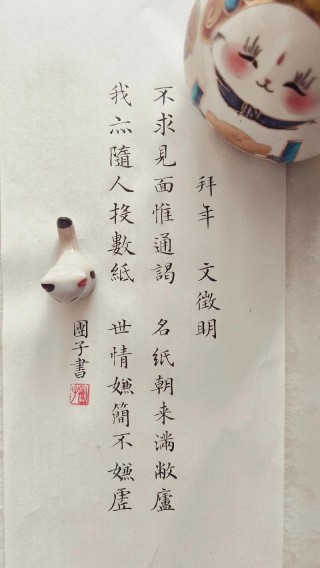 拜年 文徵明
不求見面惟通謁 名紙朝来滿敝廬
我亦隨人投數紙 世情嫌簡不嫌虛
團子書